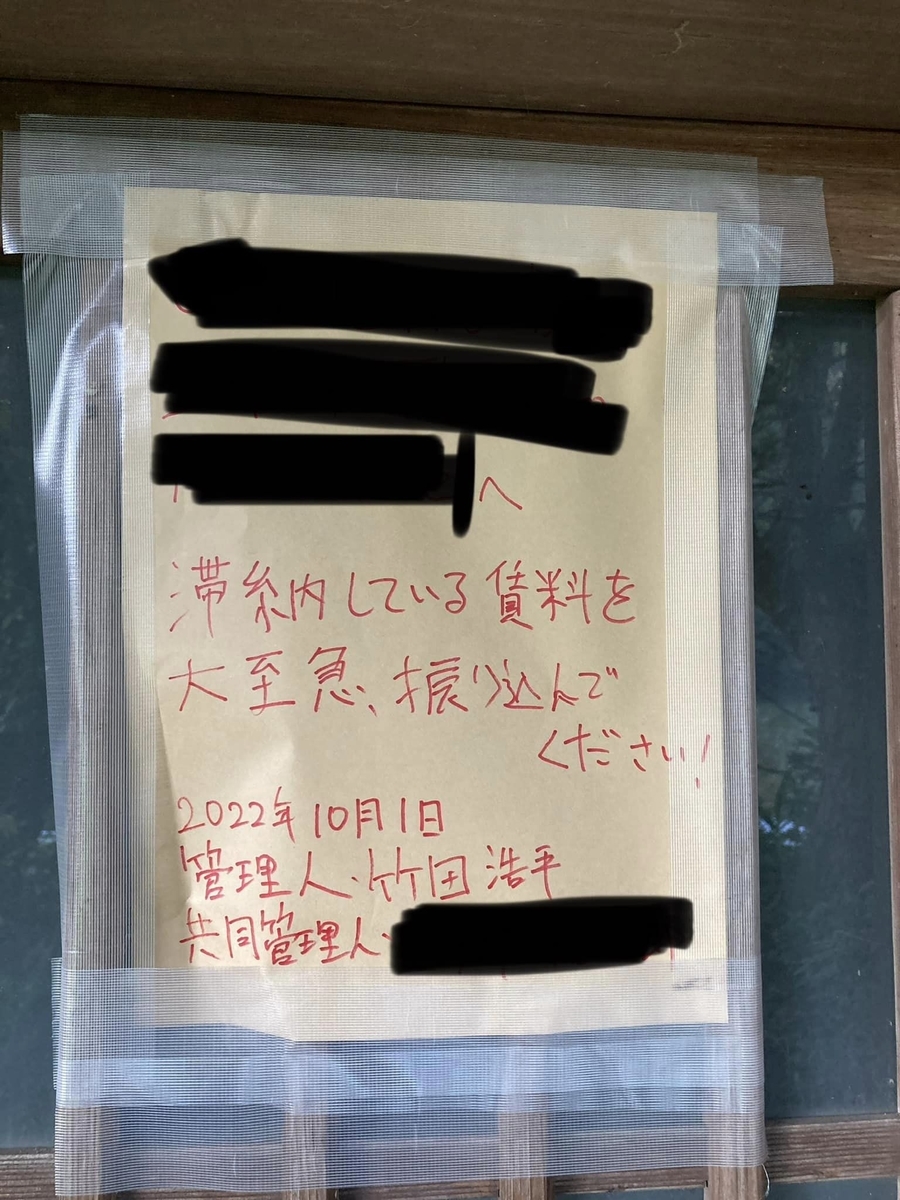 へ
滞納している賃料を
大至急、振り込んで
ください!
2022年10月1日
管理人・竹田浩平
共同管理人・